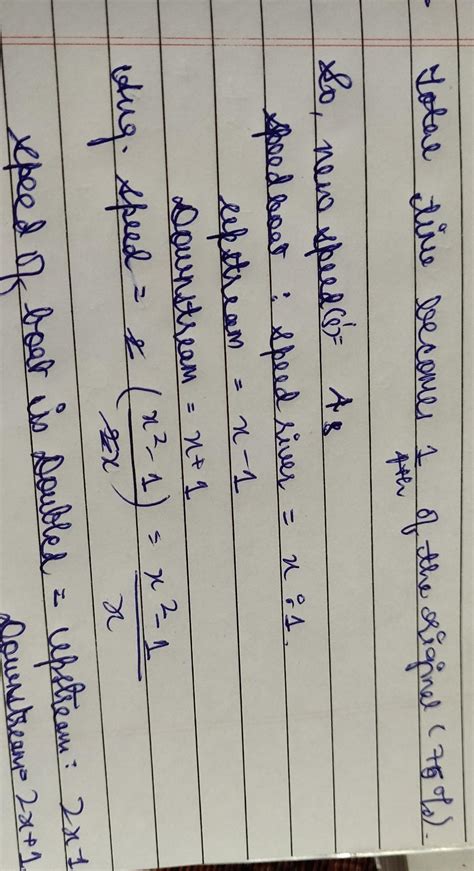 Total time becomes 1/4th of the original (75%).
So, new speed(s') = 4s
speed boat : speed river = x : 1.
upstream = x-1
Downstream = x+1
Avg. speed = 2 (x²-1 / 2x) = x²-1 / x
speed of boat is Doubled = upstream : 2x-1
Downstream = 2x+1